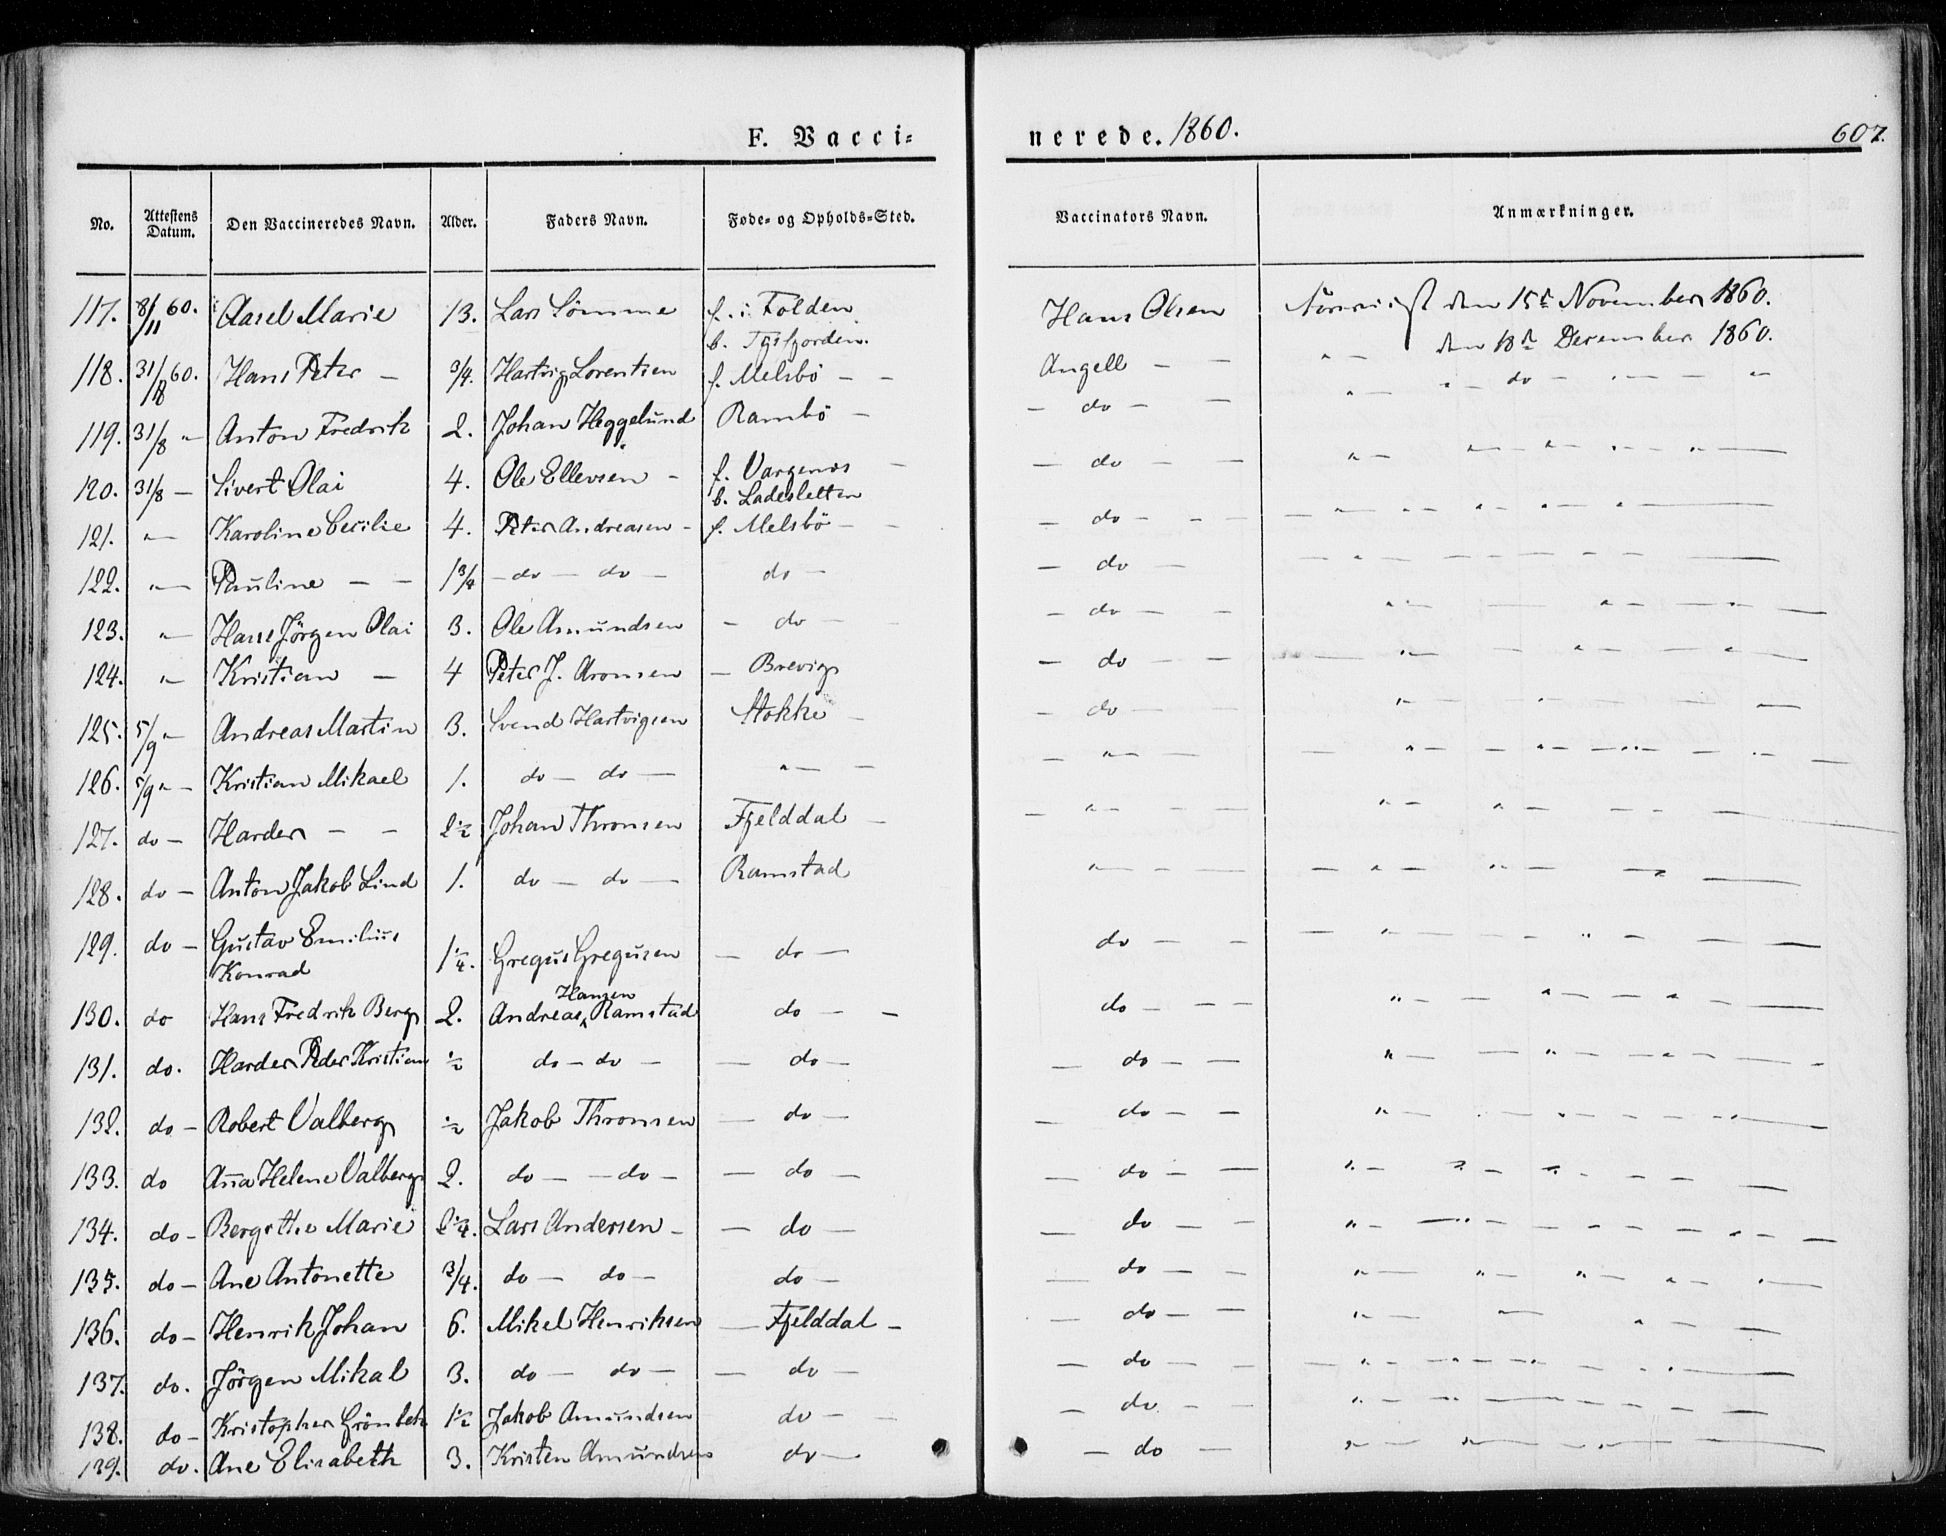 F. Vacci=
nerede. 1860.
607.
No. Attestens Datum. Den Vaccineredes Navn. Alder. Faders Navn. Føde- og Opholds-Sted. Vaccinators Navn. Anmærkninger.
117. 8/11 60. Aasel Marie 13. Lars Sömme f. i Folden Hans Olsen den 15de November 1860.
b. Tysfjorden. den 18de December 1860.
118. 31/8 60. Hans Peter — 3/4. Hartvig Lorentsen f. Melsbö — — Angell — —
— do — — " — do — " —
119. 31/8 " Anton Fredrik 2. Johan Heggelund Rambö —
120. 31/8 — Sivert Olai 4. Ole Ellevsen — f. Vargenes — — do — —
b. Ladesletten
121. " — Karoline Cecilie 4. Peter Andreasen — f. Melsbö — — do — —
122. " — Pauline — — 1 3/4 — do — do — do — — do —
123. " — Hans Jörgen Olai 3. Ole Amundsen — do — — do — —
124. " — Kristian — 4 Peter J. Aronsen — Brevig — do — —
125. 5/9 " — Andreas Martin 3. Svend Hartvigsen Stokke — — do —
126. 5/9 " — Kristian Mikael 1. do — do — " — — — " — —
127. do — Harder — — 2 1/2 Johan Thronsen Fjelddal — — " — —
128. do — Anton Jakob Lind 1. do — do — Ramstad " — —
129. do — Gustav Emilius
Konrad 1 1/4. Gregus Gregusen — do — do — —
Hansen
130. do Hans Fredrik Berg 2. Andreas Ramstad do — — do — —
131. do. Harder Peder Kristian 1/2 do — do — — do — — do — —
132. do — Robert Valberg 1/2 Jakob Thronsen — do — — do — —
133. do Anna Helene Valberg 2. do — — do — — do — — do — —
134. do — Bergithe Marie 2 1/4. Lars Andersen — — do — — do — —
135. do — Ane Antonette 3/4. do — do — do — — do — —
136. do — Henrik Johan 6. Mikel Henriksen — Fjelddal — — do — —
137. do. Jörgen Mikal 3. do — do — — do — — do — —
138. do — Kristopher Grönbek 1 1/2 Jakob Amundsen do — — do — —
139. do. Ane Elisabeth 3. Kristen Amundsen do — — do —